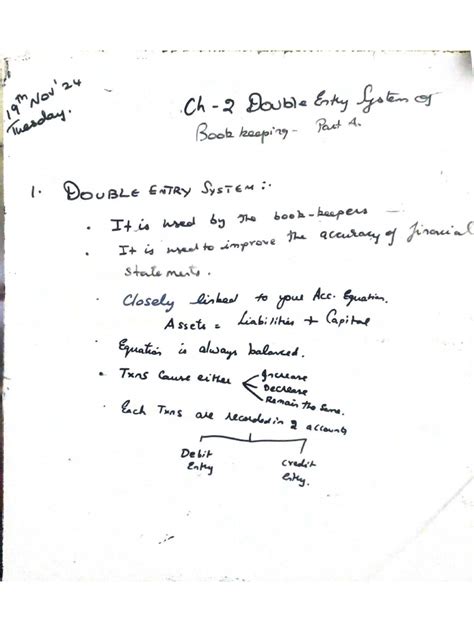 19th Nov'24
Tuesday.
Ch - 2 Double Entry System of
Book keeping - Part A.
1. DOUBLE ENTRY SYSTEM :-
• It is used by the book-keepers
• It is used to improve the accuracy of financial
statements.
• Closely linked to your Acc. Equation.
Assets = Liabilities + Capital
• Equation is always balanced.
• Txns cause either Increase
Decrease
Remain the Same.
• Each Txns are recorded in 2 accounts
Debit Entry
Credit Entry.